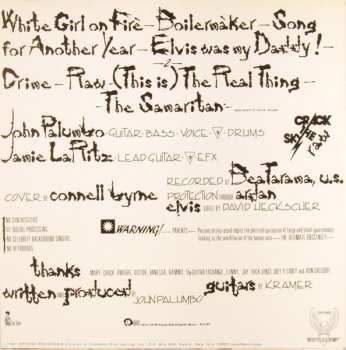 White Girl on Fire - Boilermaker - Song
for Another Year - Elvis was my Daddy! -
Crime - Raw - (This is) The Real Thing -
- The Samaritan -
John Palumbo - GUITAR · BASS · VOICE · DRUMS
Jamie LaRitz - LEAD GUITAR · EFX
CRACK THE SKY
COVER BY connell byrne
RECORDED BY BeaTarama, u.s.
PROTECTION arjan
elvis DAVID HECKSCHER
NO SYNTHESIZERS
NO DIGITAL PROCESSING
NO CELEBRITY BACKGROUND SINGERS
NO KEYBOARDS
WARNING!
thanks
written and produced by JOHN PALUMBO
guitars by KRAMER